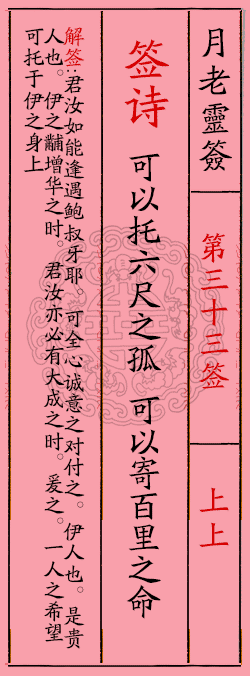 月老靈簽
第三十三签
上上
签诗
可以托六尺之孤 可以寄百里之命
解签:君汝如能逢遇鲍叔牙耶。可全心诚意之对付之。伊人也。是贵
人也。伊之黼增华之时。君汝亦必有大成之时。爰之。一人之希望
可托于伊之身上